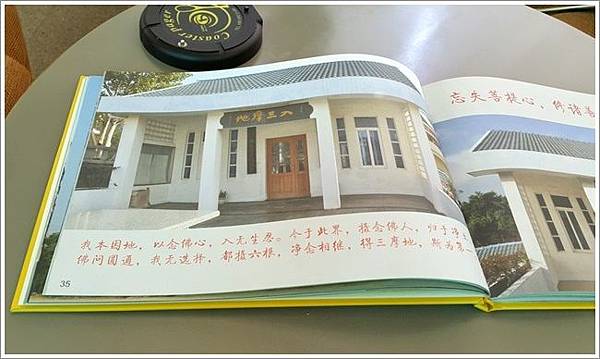 Coaster pager
入三摩地
我本因地，以念佛心，入无生忍。今于此界，摄念佛人，归于净
佛问圆通，我无选择，都摄六根，净念相继，得三摩地，斯为第一
35
忘失菩提心，修诸善